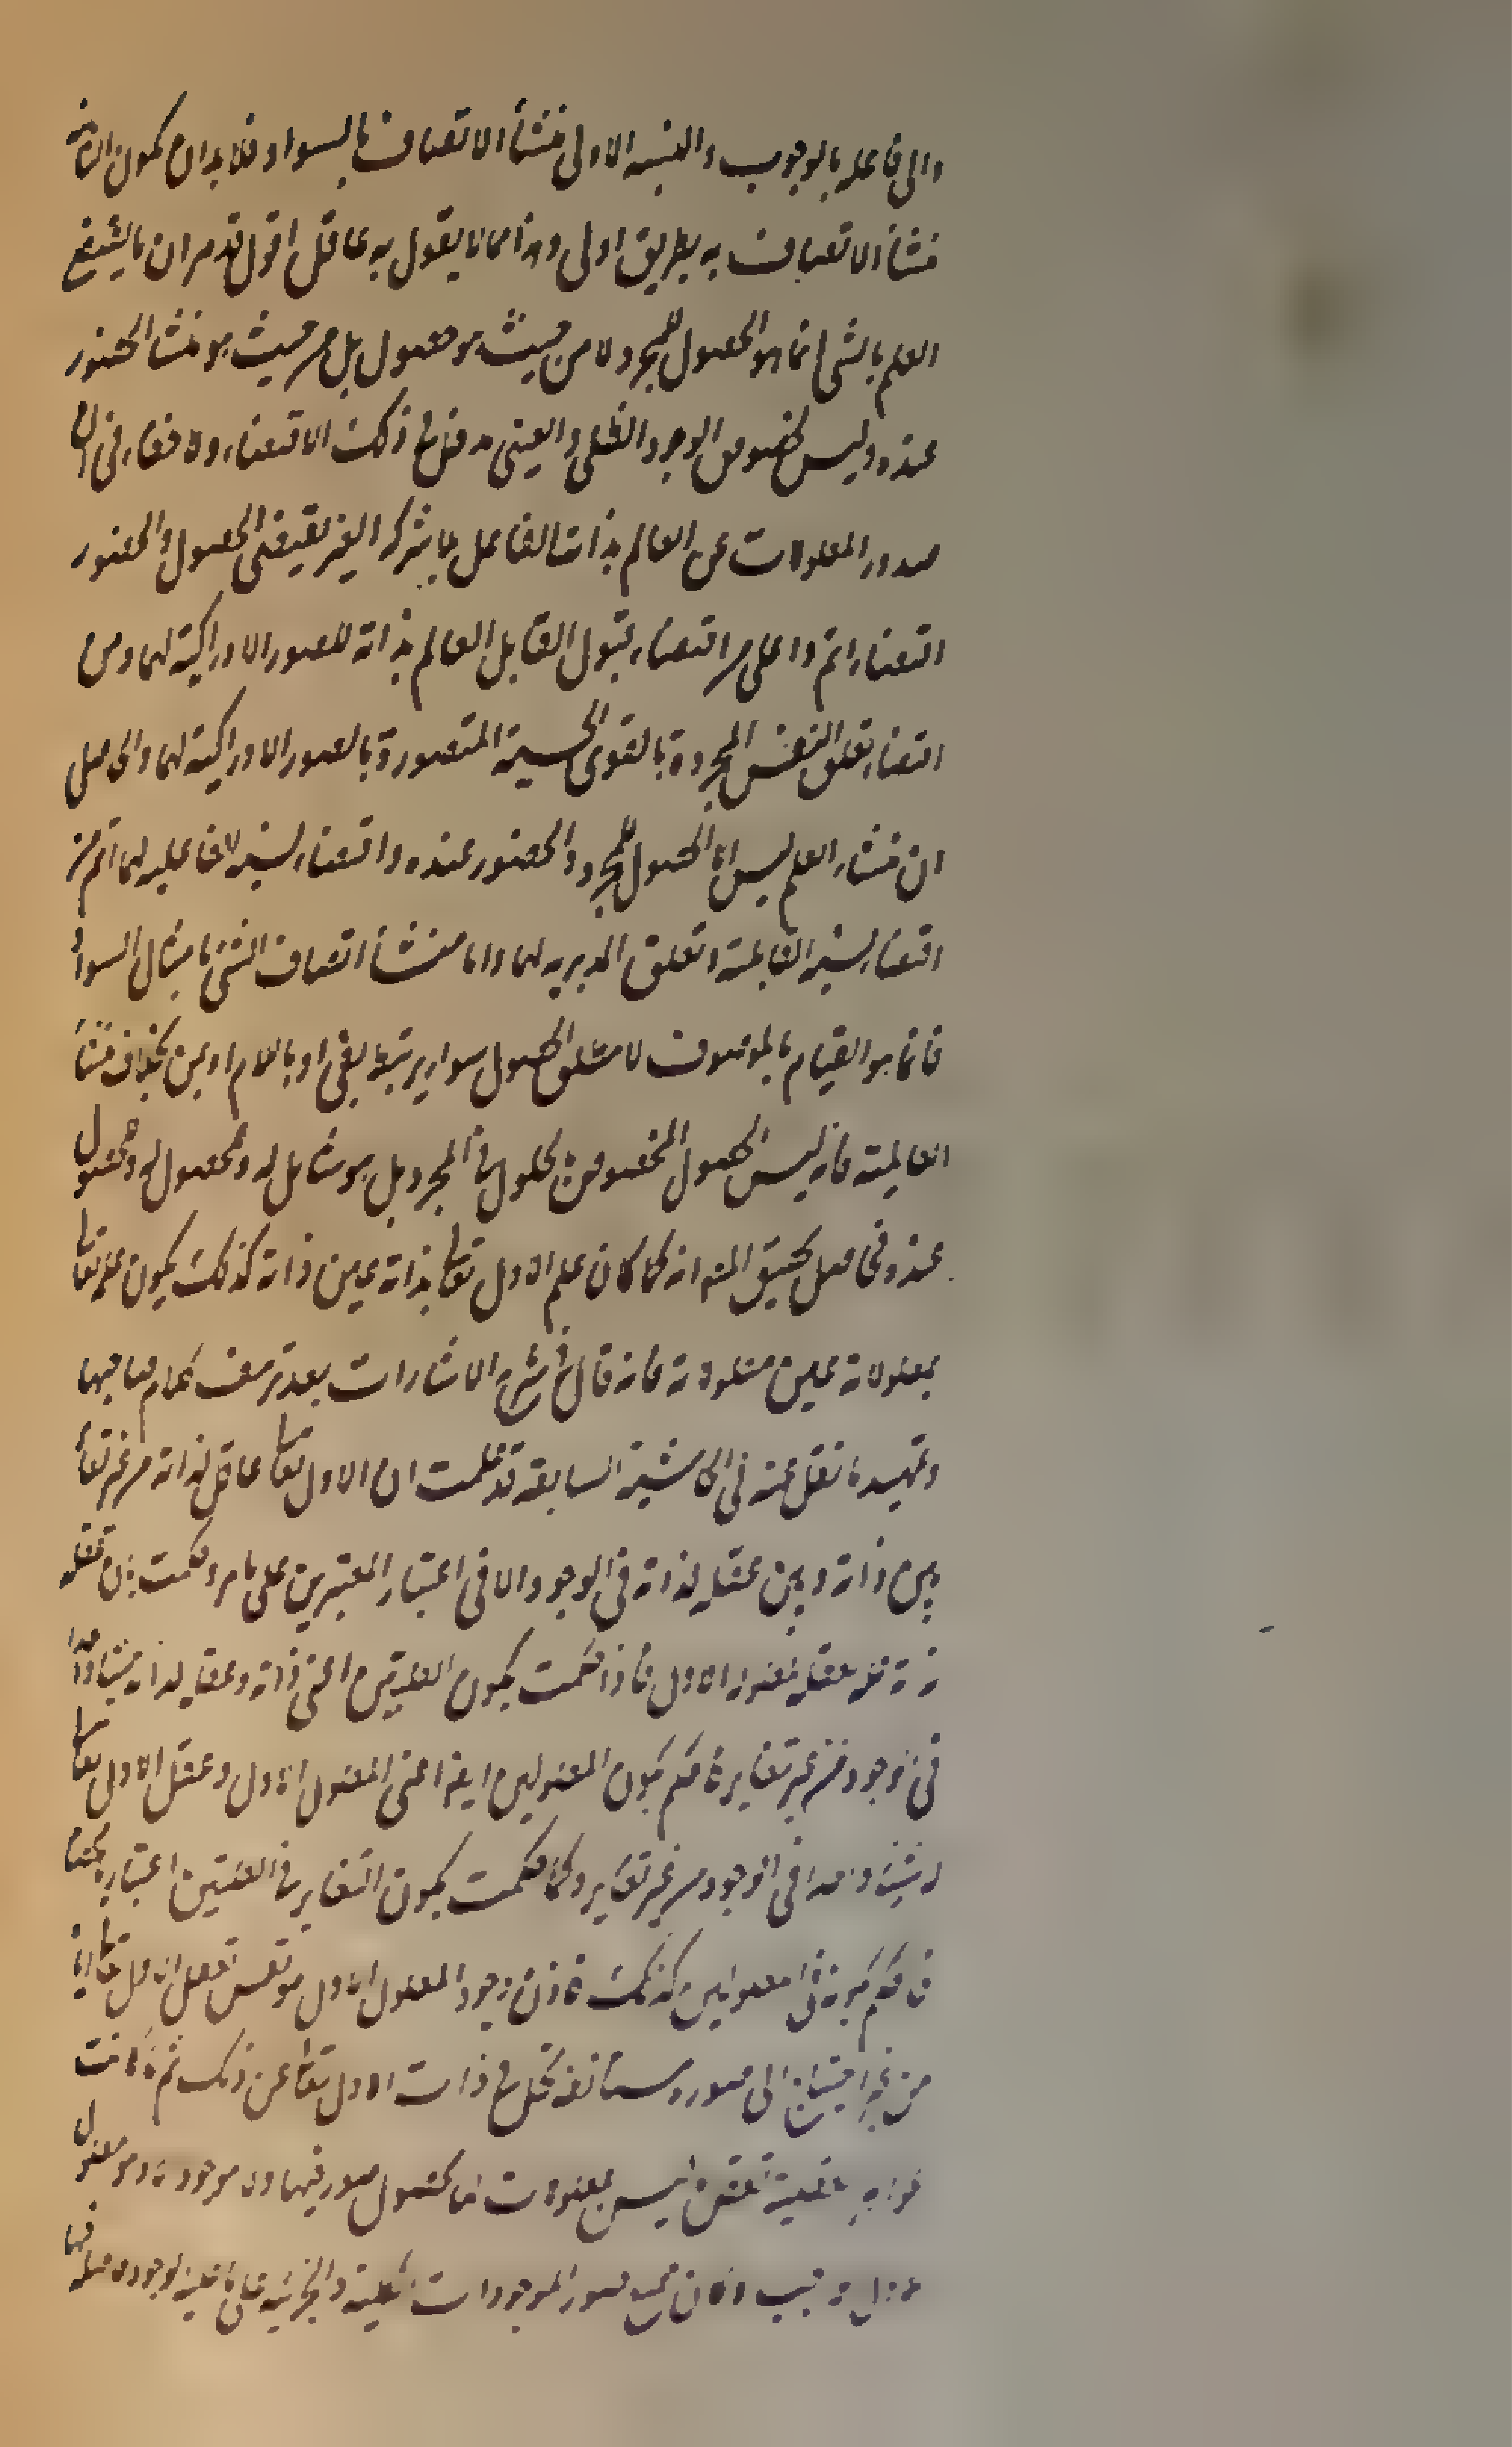 والى فاعله بالوجوب والنسبه الاولى منشأ الاتصاف بالسواد فلا بد ان يكون الثانيه
منشأ الاتصاف به بطريق اولى وهذا مما لا يقول به عاقل اقول قد مر ان ما يقتضى
العلم بالشى انما هو الحصول للمجرد لا من حيث هو حصول بل من حيث هو منشأ الحضور
عنده وليس لخصوص الوجود الظلى والعينى مدخل فى ذلك الاقتضاء ولا خفاء فى ان
صدور المعلولات عن العالم بذات الفاعل بلا شركة الغير يقتضى الحصول والحضور
اقتضاء اتم واعلى من اقتضاء قبول القابل العالم بذاته للصور الادراكية لهما ومن
اقتضاء تعلق النفس المجردة بالقوى الحسية المتصورة بالصور الادراكية لهما والحاصل
ان منشاء العلم ليس الا الحصول للمجرد والحضور عنده واقتضاء نسبة الفاعلية لهما اتم من
اقتضاء نسبة القابلية وتعلق المدبرية لهما واما منشأ اتصاف الشئ بامثال السواد
فانما هو القيام بالموصوف لا مطلق الحصول سواء يرتبط بفى او باللام او بمن بخلاف منشأ
العالمية فانه ليس الحصول المخصوص بالحلول فى المجرد بل هو شامل له وللحصول له وللحصول
عنده وحاصل تحقيق المقام انه كما كان علم الاول تعالى بذاته عين ذاته كذلك يكون علمه تعالى
بمعلولاته عين معلولاته فانه قال فى شرح الاشارات بعد تزييف كلام صاحبها
وتمهيد ما نقل عنه فى الحاشية السابقة قد علمت ان الاول تعالى عاقل لذاته من غير تغاير
بين ذاته وبين عقله لذاته فى الوجود الا فى اعتبار المعتبرين على ما مر وحكمت بان عقله
لذاته علة لعقله لمعلوله الاول فاذا حكمت بكون العلتين اعنى ذاته وعقله لذاته شيئا واحدا
فى الوجود من غير تغاير فاحكم بكون المعلولين ايضا اعنى المعلول الاول وعقل الاول تعالى
له شيئا واحدا فى الوجود من غير تغاير وكما حكمت بكون التغاير فى العلتين اعتباريا محضا
فاحكم بكونه فى المعلولين كذلك فاذن وجود المعلول الاول هو نفس تعقل الاول تعالى اياه
من غير احتياج الى صورة مستانفة تحل فى ذات الاول تعالى عن ذلك ثم لما كانت
الجواهر العقلية تعقل ما ليس بمعلولات لها بحصول صور فيها ولا موجود الا وهو معلول
للاول الواجب وكان جميع صور الموجودات الكلية والجزئية على ما عليه الوجود حاصلة فيها